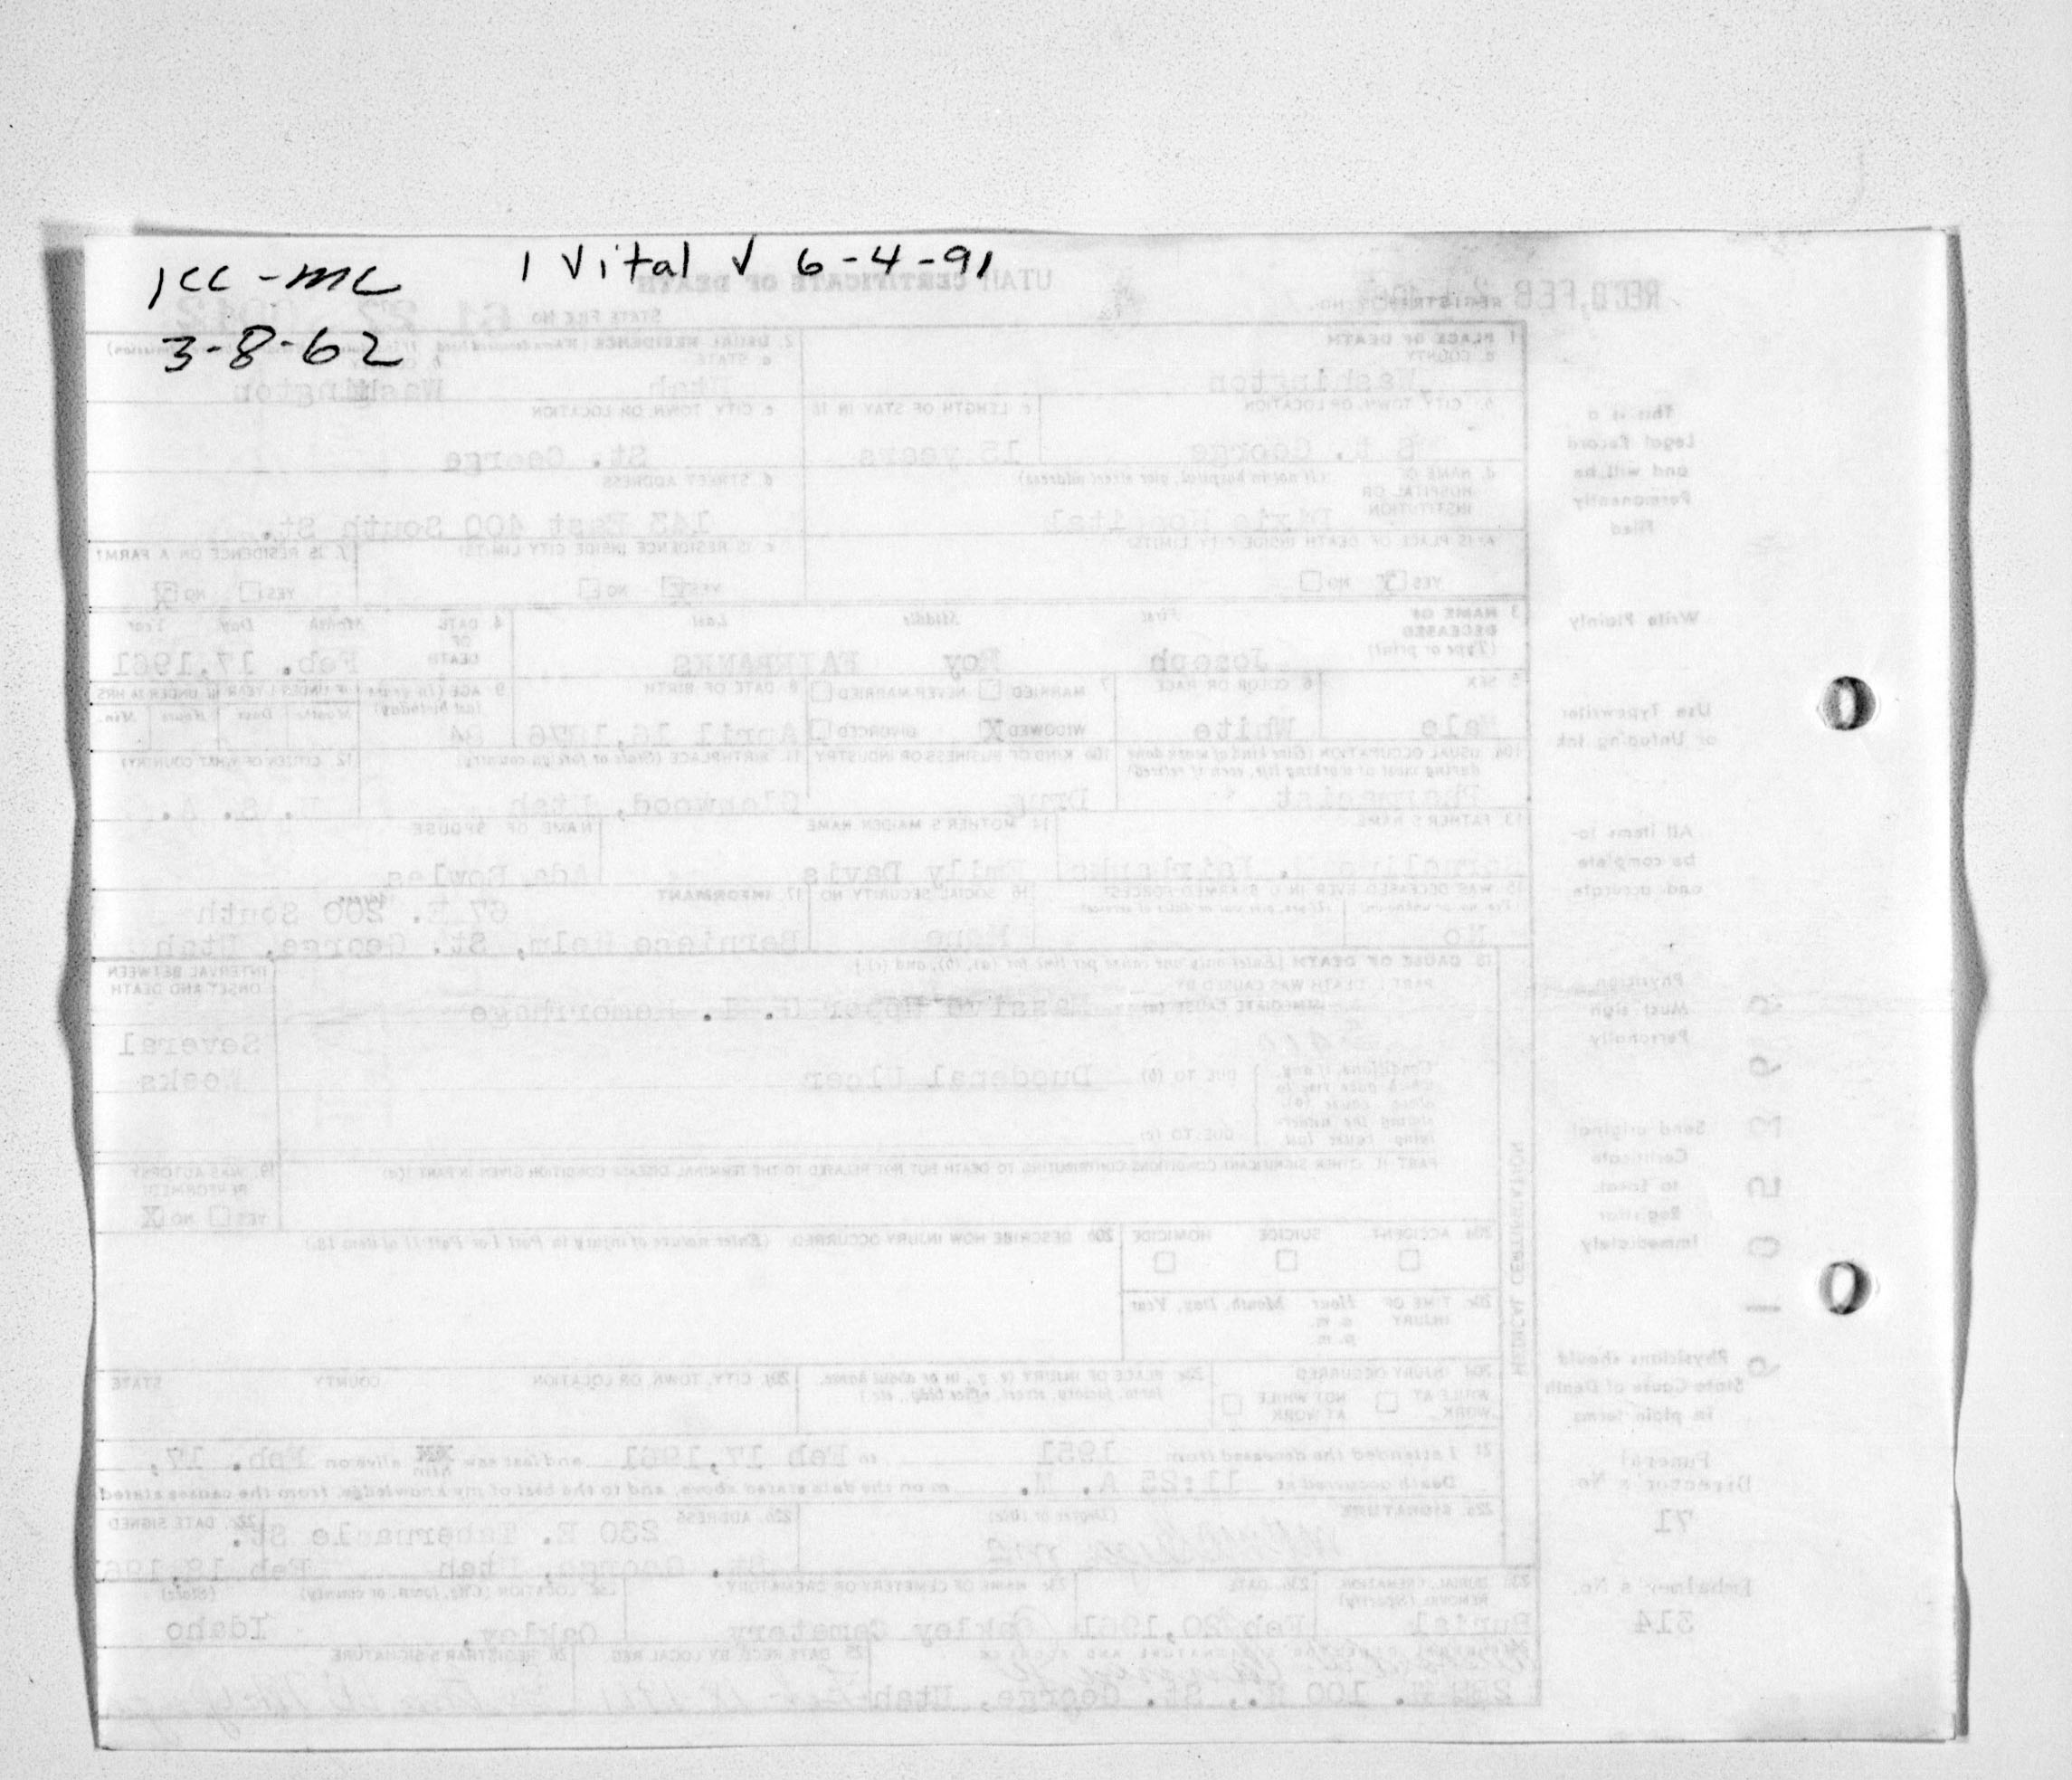 1 Vital √ 6-4-91
1cc-mc
3-8-62
UTAH CERTIFICATE OF DEATH
REC'D, FEB
REGISTRAR'S NO.
STATE FILE NO 61 27
1 PLACE OF DEATH
a. COUNTY
Washington
2. USUAL RESIDENCE
a STATE
Utah
Washington
b. CITY, TOWN, OR LOCATION
St. George
c LENGTH OF STAY IN 1b
15 years
c CITY, TOWN, OR LOCATION
St. George
d. NAME OF HOSPITAL OR INSTITUTION
(If not in hospital, give street address)
Dixie Hospital
d STREET ADDRESS
143 East 400 South St.
IS PLACE OF DEATH INSIDE CITY LIMITS?
YES NO
e IS RESIDENCE INSIDE CITY LIMITS?
YES NO
f. IS RESIDENCE ON A FARM?
YES NO X
3 NAME OF DECEASED
(Type or print)
First Middle Last
Joseph Roy FAIRBANKS
4 DATE OF DEATH
Month Day Year
Feb. 17,1961
5 SEX
Male
6 COLOR OR RACE
White
7 MARRIED NEVER MARRIED
WIDOWED X DIVORCED
8 DATE OF BIRTH
April 16,1876
9 AGE (In years last birthday)
84
IF UNDER 1 YEAR IF UNDER 24 HRS
Months Days Hours Min.
10a. USUAL OCCUPATION (Give kind of work done during most of working life, even if retired)
Pharmacist
10b KIND OF BUSINESS OR INDUSTRY
Drug
11. BIRTHPLACE (State or foreign country)
Glenwood, Utah
12. CITIZEN OF WHAT COUNTRY?
U. S. A.
13 FATHER'S NAME
Fairbanks
14 MOTHER'S MAIDEN NAME
Emily Davis
NAME OF SPOUSE
Ada Rowles
15 WAS DECEASED EVER IN U S ARMED FORCES?
No
16 SOCIAL SECURITY NO
None
17. INFORMANT
67 E. 200 South
Berniece Helm, St. George, Utah
18 CAUSE OF DEATH [Enter only one cause per line for (a), (b), and (c).]
PART I. DEATH WAS CAUSED BY
IMMEDIATE CAUSE (a)
Massive Upper G. I. Hemorrhage
INTERVAL BETWEEN ONSET AND DEATH
Several
Weeks
Conditions, if any, which gave rise to above cause (a) stating the underlying cause last
DUE TO (b)
Duodenal Ulcer
DUE TO (c)
PART II. OTHER SIGNIFICANT CONDITIONS CONTRIBUTING TO DEATH BUT NOT RELATED TO THE TERMINAL DISEASE CONDITION GIVEN IN PART I(a)
19. WAS AUTOPSY PERFORMED?
YES NO X
20a ACCIDENT SUICIDE HOMICIDE
20b DESCRIBE HOW INJURY OCCURRED. (Enter nature of injury in Part I or Part II of item 18.)
20c TIME OF INJURY
Hour Month, Day, Year
a. m.
p. m
20d INJURY OCCURRED
WHILE AT WORK NOT WHILE AT WORK
20e PLACE OF INJURY (e. g., in or about home, farm, factory, street, office bldg., etc.)
20f CITY, TOWN, OR LOCATION COUNTY STATE
21 I attended the deceased from 1951 to Feb 17,1961 and last saw him alive on Feb. 17,
Death occurred at 11:25 A. M. m on the date stated above, and to the best of my knowledge, from the causes stated
22a SIGNATURE (Degree or title)
22b. ADDRESS
230 E. Tabernacle St.
St. George, Utah
22c DATE SIGNED
Feb 18,1961
BURIAL, CREMATION REMOVAL (Specify)
Burial
23b. DATE
Feb 20,1961
23c NAME OF CEMETERY OR CREMATORY
Oakley Cemetery
LOCATION (City, town, or county) (State)
Oakley, Idaho
25 DATE RECD BY LOCAL REG
26 REGISTRAR'S SIGNATURE
100 St. George, Utah
MEDICAL CERTIFICATION
This is a
Legal Record
and will be
Permanently
Filed
Write Plainly
Use Typewriter
or Unfading Ink
All items to
be complete
and accurate
Physician
Must sign
Personally
Send original
Certificate
to Local
Registrar
Immediately
Physicians should
State Cause of Death
in plain terms
Funeral
Director's No.
71
Embalmer's No.
314